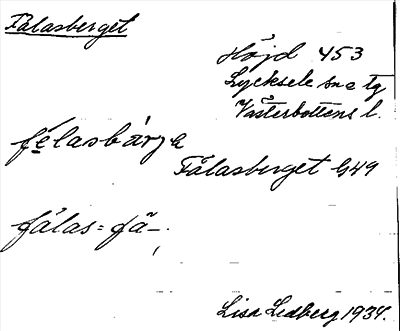 Fålasberget
Höjd 453
Lycksele sn o tg
Västerbottens l.
fe̱lasbárj̣a
Fålasberget G49
fålas = få̄-,
Lisa Ledberg 1934.